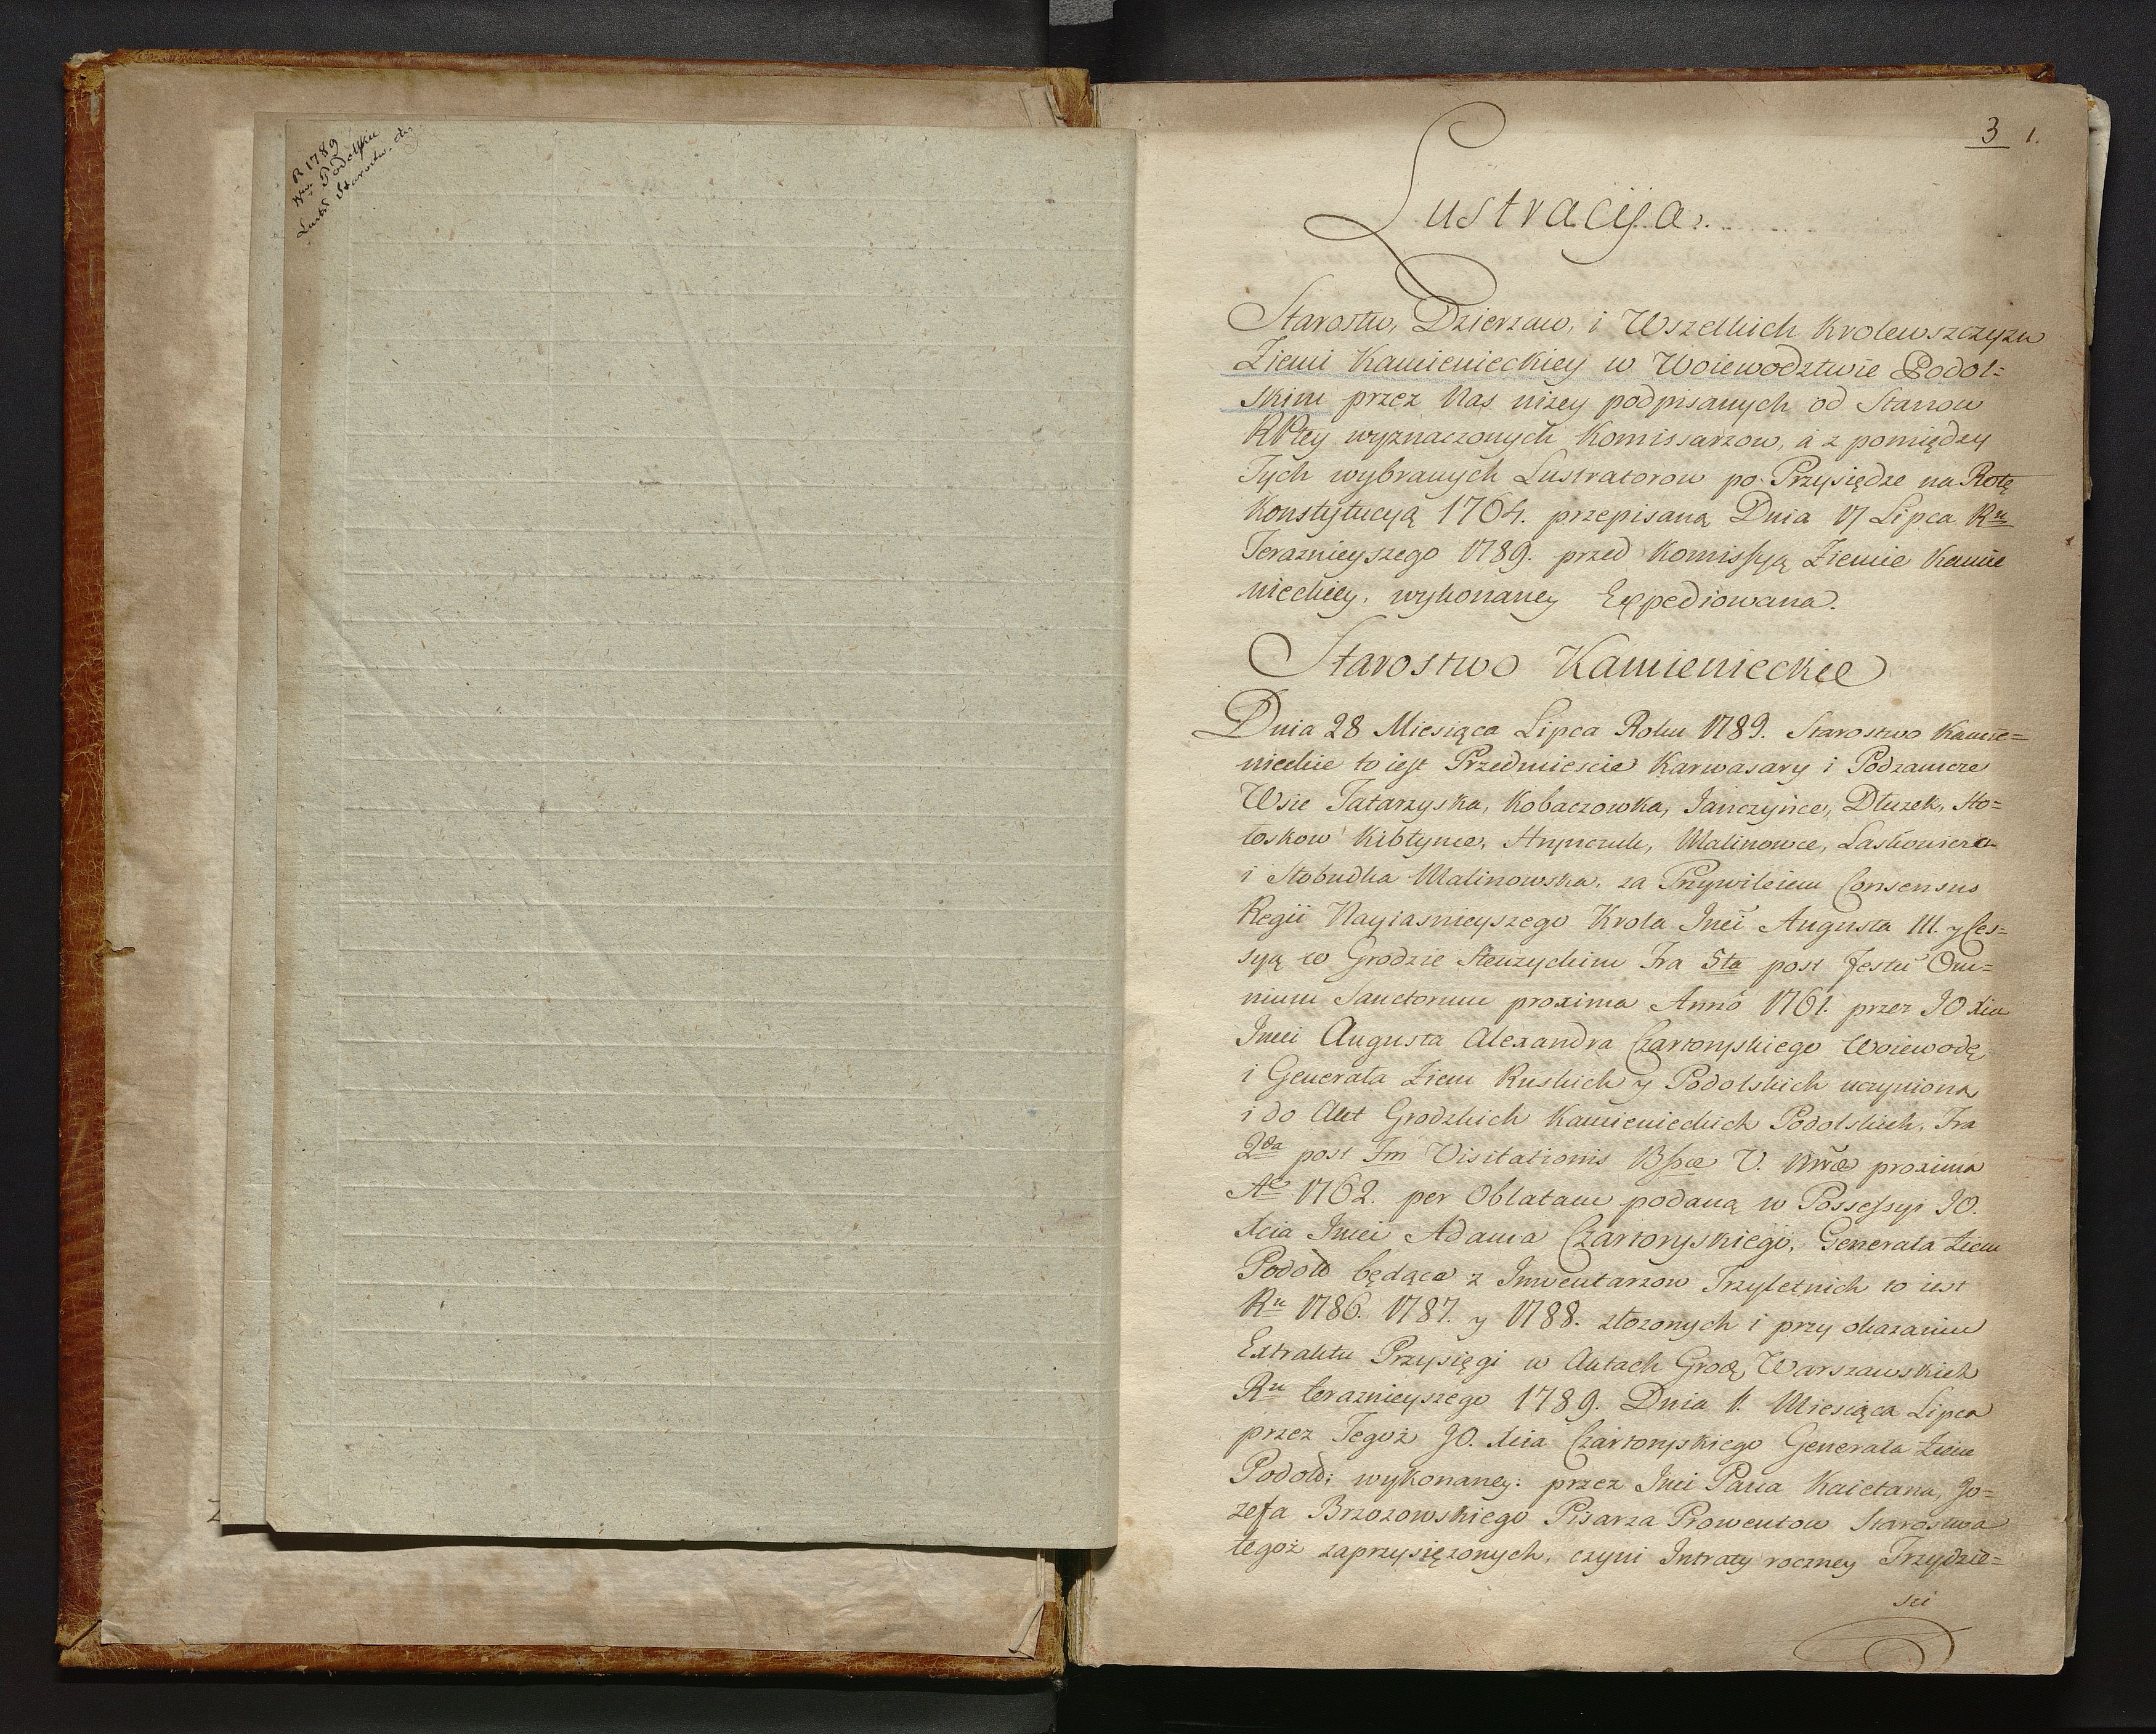 R 1789
Podolskie
3 1.
Lustracyja.
Starostw, Dzierzaw, i Wszelkich Krolewszczyzn
Ziemi Kamienieckiey w Woiewodztwie Podol=
skim przez Nas nizey podpisanych od Stanow
RPltey wyznaczonych Komissarzow, á z pomiędzy
Tych wybranych Lustratorow po Przysiędze na Rotę
Konstytucyą 1764. przepisaną Dnia 17 Lipca Ru
Teraznieyszego 1789. przed Komissyą Ziemie Kamie
nieckiey, wykonaney Expediowana.
Starostwo Kamienieckie
Dnia 28 Miesiąca Lipca Roku 1789. Starostwo Kamie=
nieckie to iest Przedmieście Karwasary i Podzamcze
Wsie Tatarzyska, Kobaczowka, Janczyńce, Dłuzek, Ho=
łoskow Kibłynce, Hrynczuk, Malinowce,
i Słobudka Malinowska, za Przywileiem Consensus
Regii Nayiasnieyszego Krola Jmci Augusta III. y Ces=
syą w Grodzie Stenzyckim Fra 5ta post Festū Om=
nium Sanctorum proxima Anno 1761. przez JO Xcia
Jmci Augusta Alexandra Czartoryskiego Woiewodę
i Generała Ziem Ruskich y Podolskich uczynioną
i do Akt Grodzkich Kamienieckich Podolskich, Fra
2da post Fm Visitationis Bssæ V. Mræ proxima
Ao 1762. per Oblatam podaną w Possessyi JO.
Xcia Jmci Adama Czartoryskiego, Generała Ziem
Podol będące z Inwentarzow Trzyletnich to iest
Ru 1786. 1787. y 1788. złozonych i przy okazaniu
Extraktu Przysięgi w Aktach Grod, Warszawskich
Ru teraznieyszego 1789. Dnia 1. Miesiąca Lipca
przez Tegoż JO. Xcia Czartoryskiego Generała Ziem
Podol: wykonaney: przez Jmci Pana Kaietana, Jo=
zefa Brzozowskiego Pisarza Prowentow Starostwa
tegoż zaprzysięzonych, czyni Intraty roczney Trzydzie=
sci